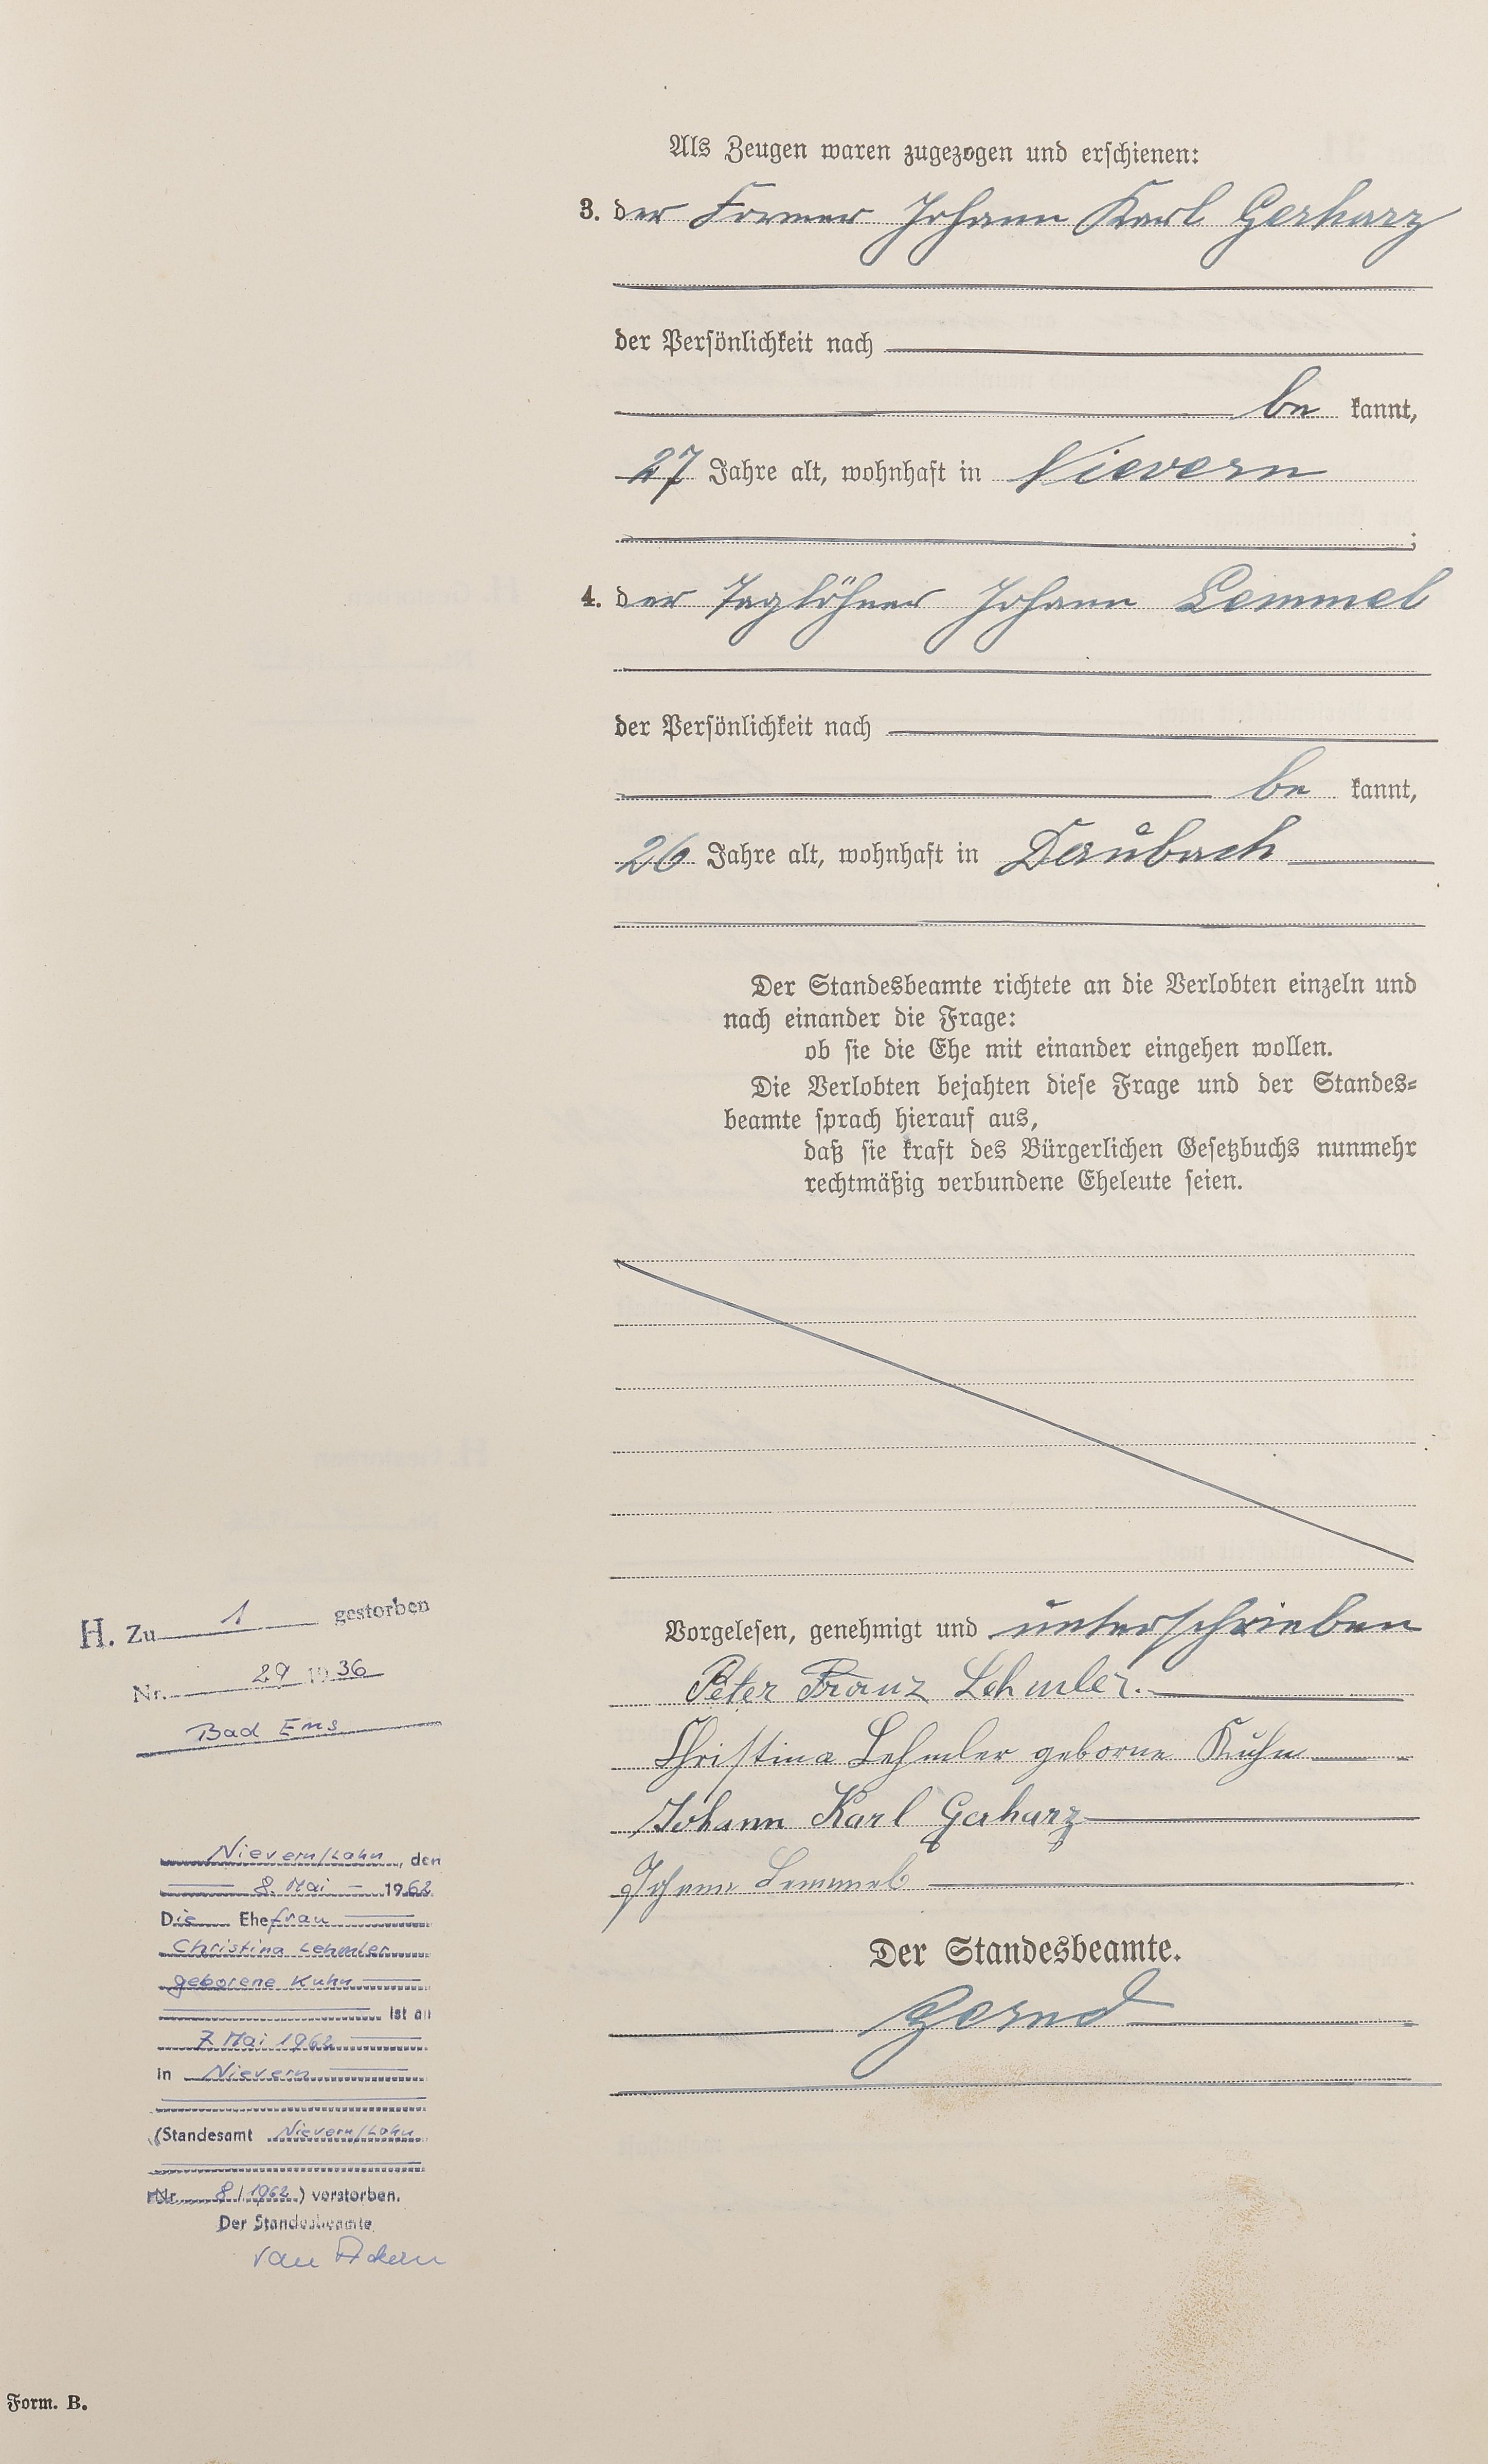 Als Zeugen waren zugezogen und erschienen:
3. der Former Johann Karl Gerharz
der Persönlichkeit nach
be kannt,
27 Jahre alt, wohnhaft in Nievern
;
4. der Taglöhner Johann Lemmel
der Persönlichkeit nach
be kannt,
26 Jahre alt, wohnhaft in Daubach
Der Standesbeamte richtete an die Verlobten einzeln und
nach einander die Frage:
ob sie die Ehe mit einander eingehen wollen.
Die Verlobten bejahten diese Frage und der Standes-
beamte sprach hierauf aus,
daß sie kraft des Bürgerlichen Gesetzbuchs nunmehr
rechtmäßig verbundene Eheleute seien.
Vorgelesen, genehmigt und unterschrieben
Peter Franz Lehmler.
Christina Lehmler geborne Kuhn
Johann Karl Gerharz
Johann Lemmel
Der Standesbeamte.
H. Zu 1 gestorben
Nr. 29 1936
Bad Ems
Nievern/Lahn, den
8. Mai 1962
Die Ehefrau
Christina Lehmler
geborene Kuhn
ist am
7. Mai 1962
in Nievern
(Standesamt Nievern/Lahn
Nr. 8/1962) verstorben.
Der Standesbeamte
Form. B.